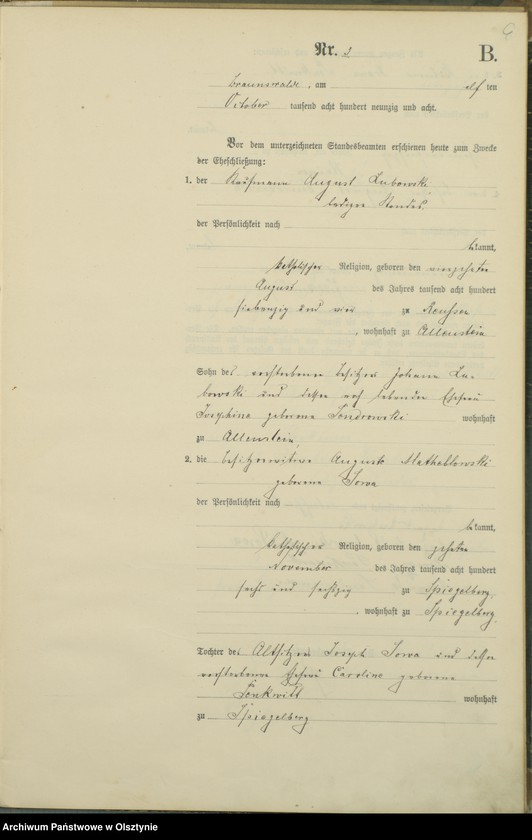 Nr. 2
B.
Braunswalde, am elf ten
October tausend acht hundert neunzig und acht.
Vor dem unterzeichneten Standesbeamten erschienen heute zum Zwecke
der Eheschließung:
1. der Kaufmann August Lubowski
ledigen Standes,
der Persönlichkeit nach
bekannt,
katholischer Religion, geboren den vierzehnten
August des Jahres tausend acht hundert
siebenzig und vier zu Reussen
, wohnhaft zu Allenstein
Sohn des verstorbenen Besitzers Johann Lu-
bowski und dessen noch lebenden Ehefrau
Josephina geborene wohnhaft
zu Allenstein,
2. die Besitzerwittwe Auguste Matheblowski
geborene Sowa
der Persönlichkeit nach
bekannt,
katholischer Religion, geboren den zehnten
November des Jahres tausend acht hundert
sechs und sechszig zu Spiegelberg,
, wohnhaft zu Spiegelberg,
Tochter des Altsitzers Joseph Sowa und dessen
verstorbenen Ehefrau Caroline geborene
wohnhaft
zu Spiegelberg
Archiwum Państwowe w Olsztynie